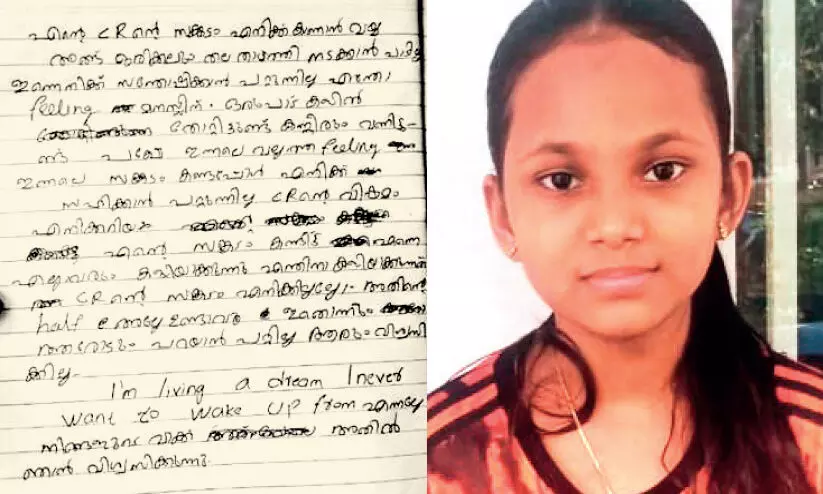 എന്റെ CR ന്റെ സങ്കടം എനിക്ക് കണ്ടാൻ വയ്യ
അങ്ങ് ഒരിക്കലും തല താഴ്ത്തി നടക്കാൻ പാടില്ല
ഇന്നെനിക്ക് സന്തോഷിക്കാൻ പറ്റുന്നില്ല എന്തോ
feeling മനസ്സിന്. ഒരുപാട് കളിൽ
തോറ്റിട്ടുണ്ട് കണ്ണീരും വന്നിട്ടു-
ണ്ട് പക്ഷേ ഇന്നലെ വല്ലാത്ത feeling
ഇന്നലെ സങ്കടം കണ്ടപ്പോൾ എനിക്ക്
സഹിക്കാൻ പറ്റുന്നില്ല CR ന്റെ വിഷമം
എനിക്കറിയാം
എന്റെ സങ്കടം കണ്ട് എന്നെ
എല്ലാവരും കളിയാക്കുന്നു എന്തിനാ കളിയാക്കുന്നത്
CR ന്റെ സങ്കടം എനിക്കില്ലല്ലോ. അതിന്റെ
half അല്ലേ ഉണ്ടാവൂ ഇതൊന്നും
ആരോടും പറയാൻ പറ്റില്ല ആരും വിശ്വസി
ക്കില്ല.
I'm living a dream I never
want to wake up from എന്നല്ലേ
നിങ്ങളുടെ വാക്ക് അതിൽ
ഞാൻ വിശ്വസിക്കുന്നു.